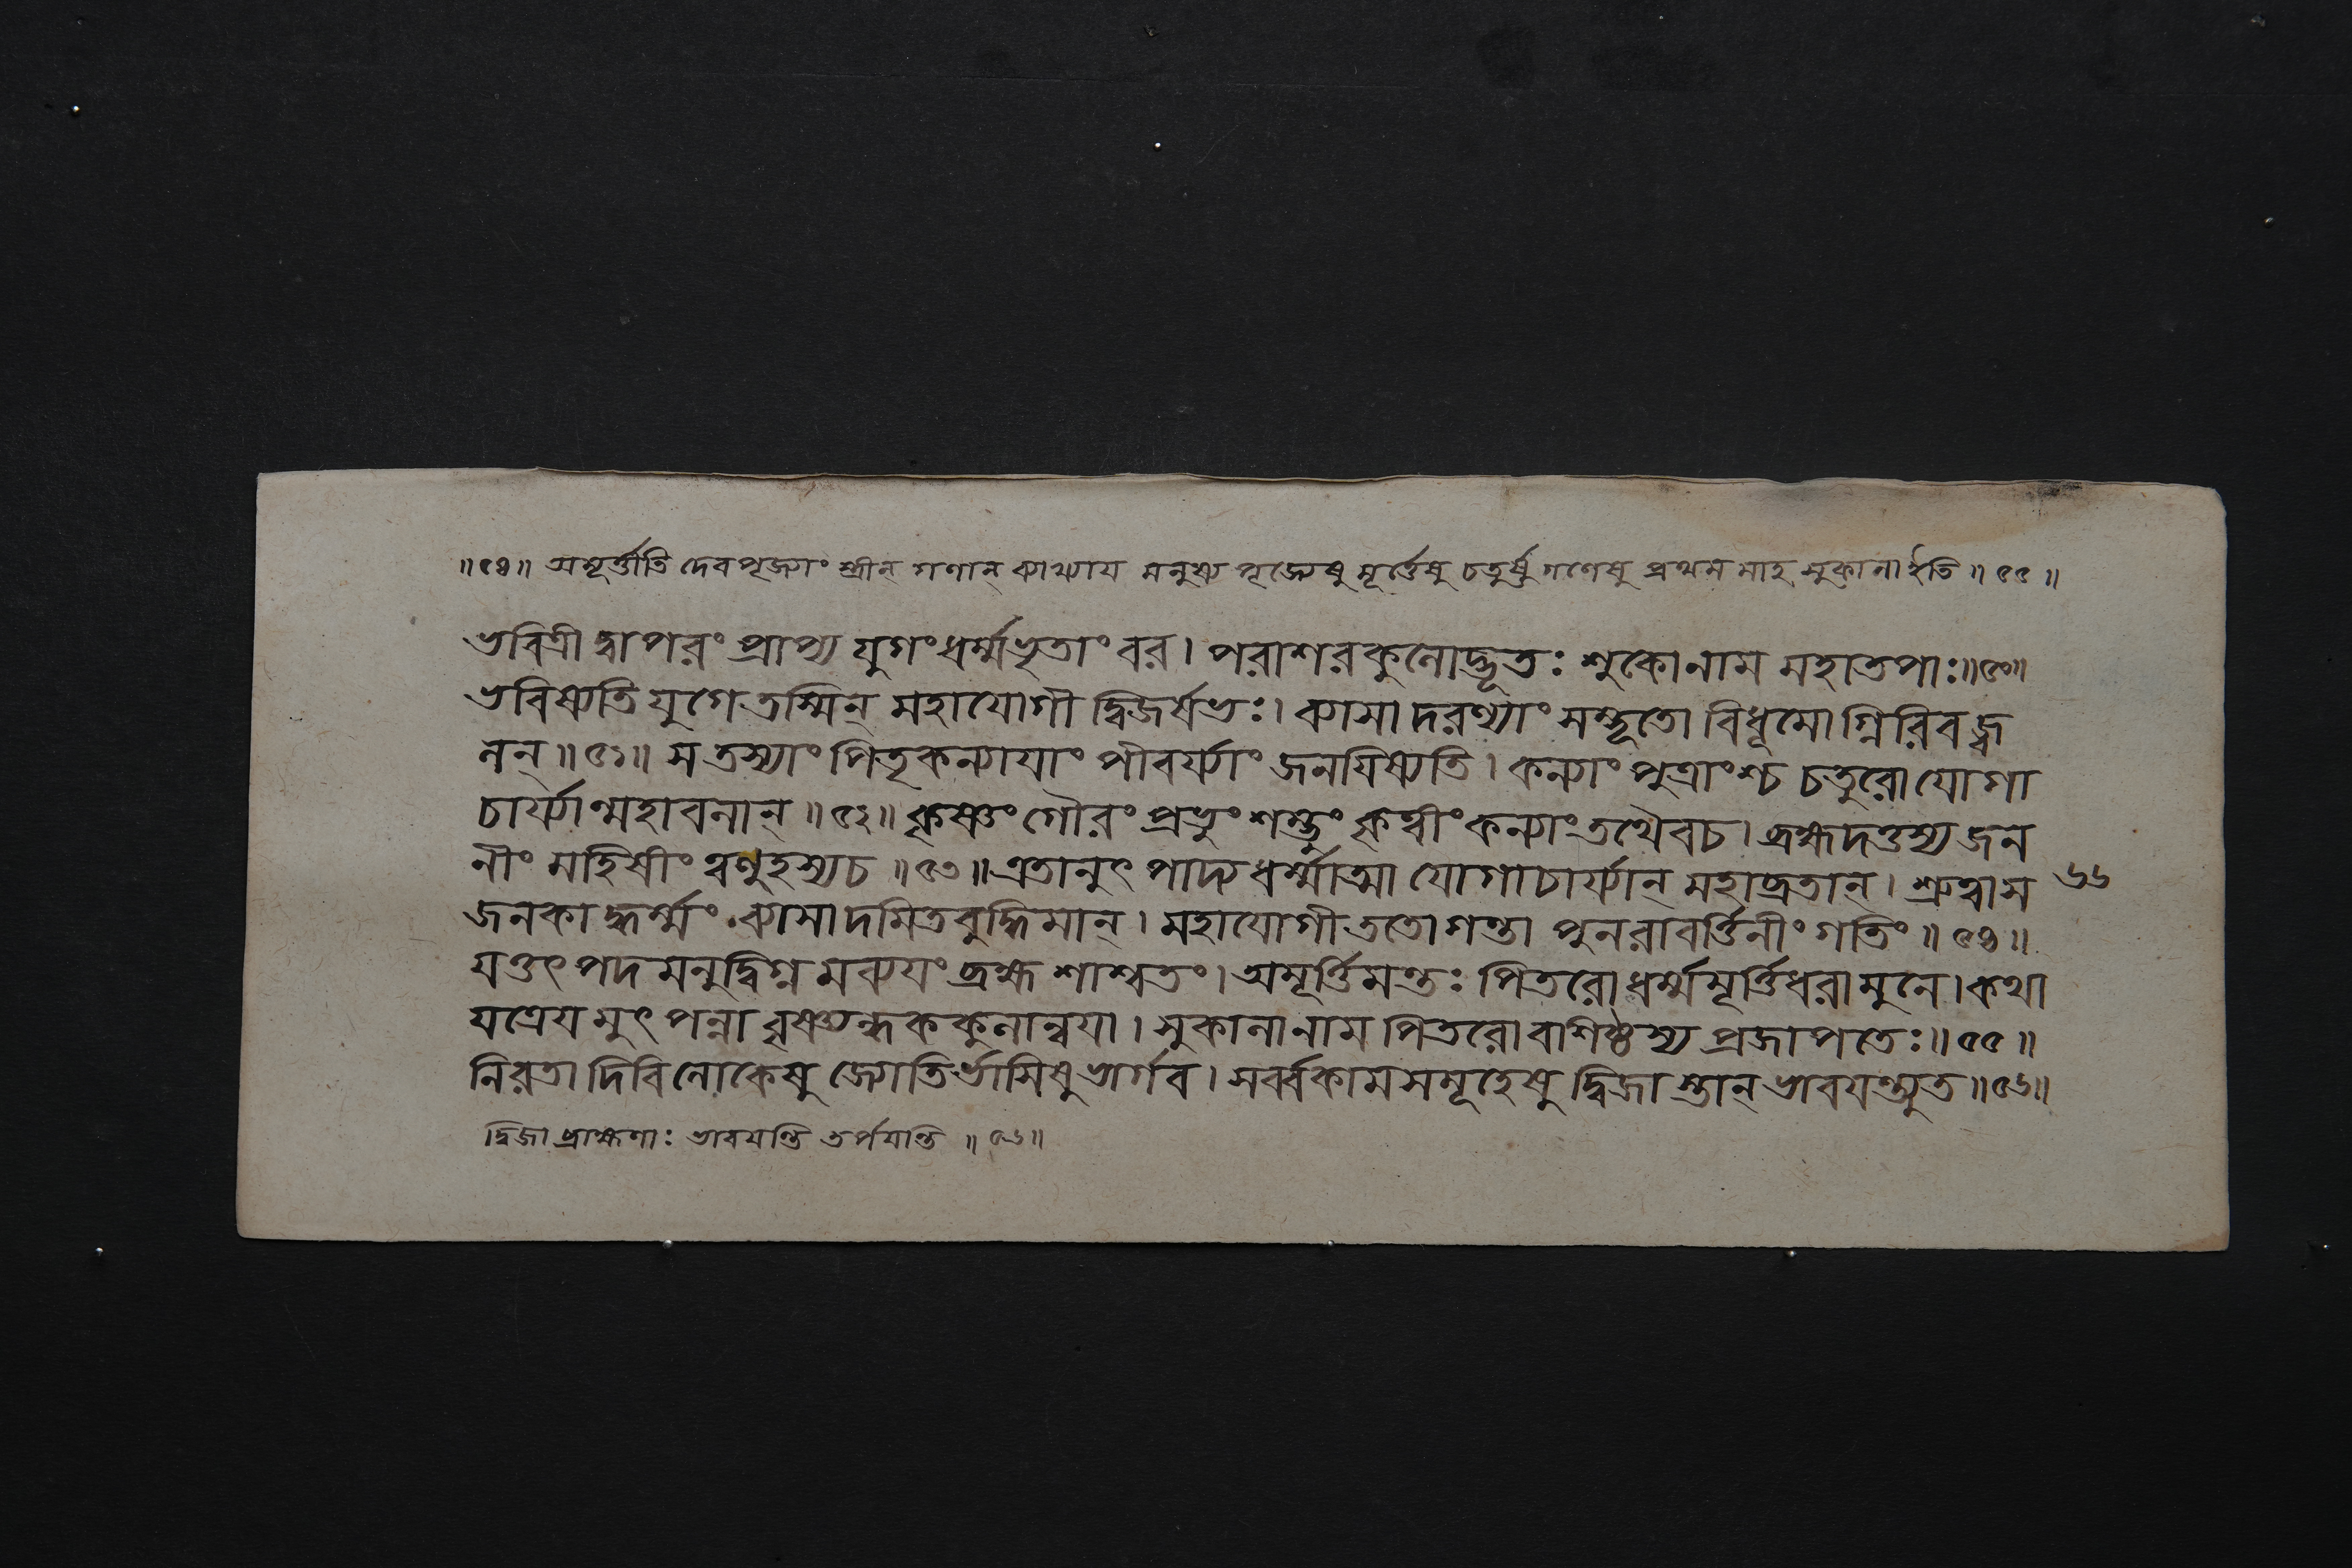 ॥৫৪॥ অমূর্ত্তীতি দেবপূজ্যাং স্ত্রীন্ গণান্ ব্যাখ্যায় মনুষ্য পূজ্যেষু মূর্ত্তেষু চতুর্ষু গণেষু প্রথম মাহ সুকালা ইতি ॥ ৫৫ ॥
ভবিত্রী দ্বাপরং প্রাপ্য যুগং ধর্ম্মভৃতাং বর। পরাশরকুলোদ্ভূতঃ শুকো নাম মহাতপাঃ॥৫০॥
ভবিষ্যতি যুগে তস্মিন্ মহাযোগী দ্বিজর্ষভঃ। ব্যাসা দরণ্যাং সম্ভূতো বিধূমোগ্নিরিবজ্ব
লন্॥৫১॥ স তস্যাং পিতৃকন্যায়াং পীবর্য্যাং জনয়িষ্যতি। কন্যাং পুত্রাংশ্চ চতুরো যোগা
চার্য্যান্মহাবলান্ ॥৫২॥ কৃষ্ণং গৌরং প্রভুং শম্ভুং কৃত্বীং কন্যাং তথৈবচ। ব্রহ্মদত্তস্য জন
নীং মহিষীং ত্বণুহস্যচ ॥৫৩॥ এতানুৎ পাদ্য ধর্ম্মাত্মা যোগাচার্য্যান্ মহাব্রতান্। শ্রুত্বা স
জনকা দ্ধর্ম্মং ব্যাসা দমিতবুদ্ধিমান্। মহাযোগী ততো গন্তা পুনরাবর্ত্তিনীং গতিং ॥ ৫৪ ॥
যত্তৎ পদ মনুদ্বিগ্ন মব্যয়ং ব্রহ্ম শাশ্বতং। অমূর্ত্তিমন্তঃ পিতরো ধর্ম্মমূর্ত্তিধরা মুনে। কথা
যত্রেয় মুৎ পন্না বৃষ্ণ্যন্ধককুলান্বয়া। সুকালা নাম পিতরো বাশিষ্ঠস্য প্রজাপতেঃ॥ ৫৫ ॥
নিরতা দিবি লোকেষু জ্যোতির্ভাসিষু ভার্গব। সর্ব্বকামসমূহেষু দ্বিজা স্তান্ ভাবয়ন্ত্যুত ॥৫৬॥
দ্বিজা ব্রাহ্মণাঃ ভাবয়ন্তি তর্পয়ন্তি ॥ ৫৬॥
৬৬